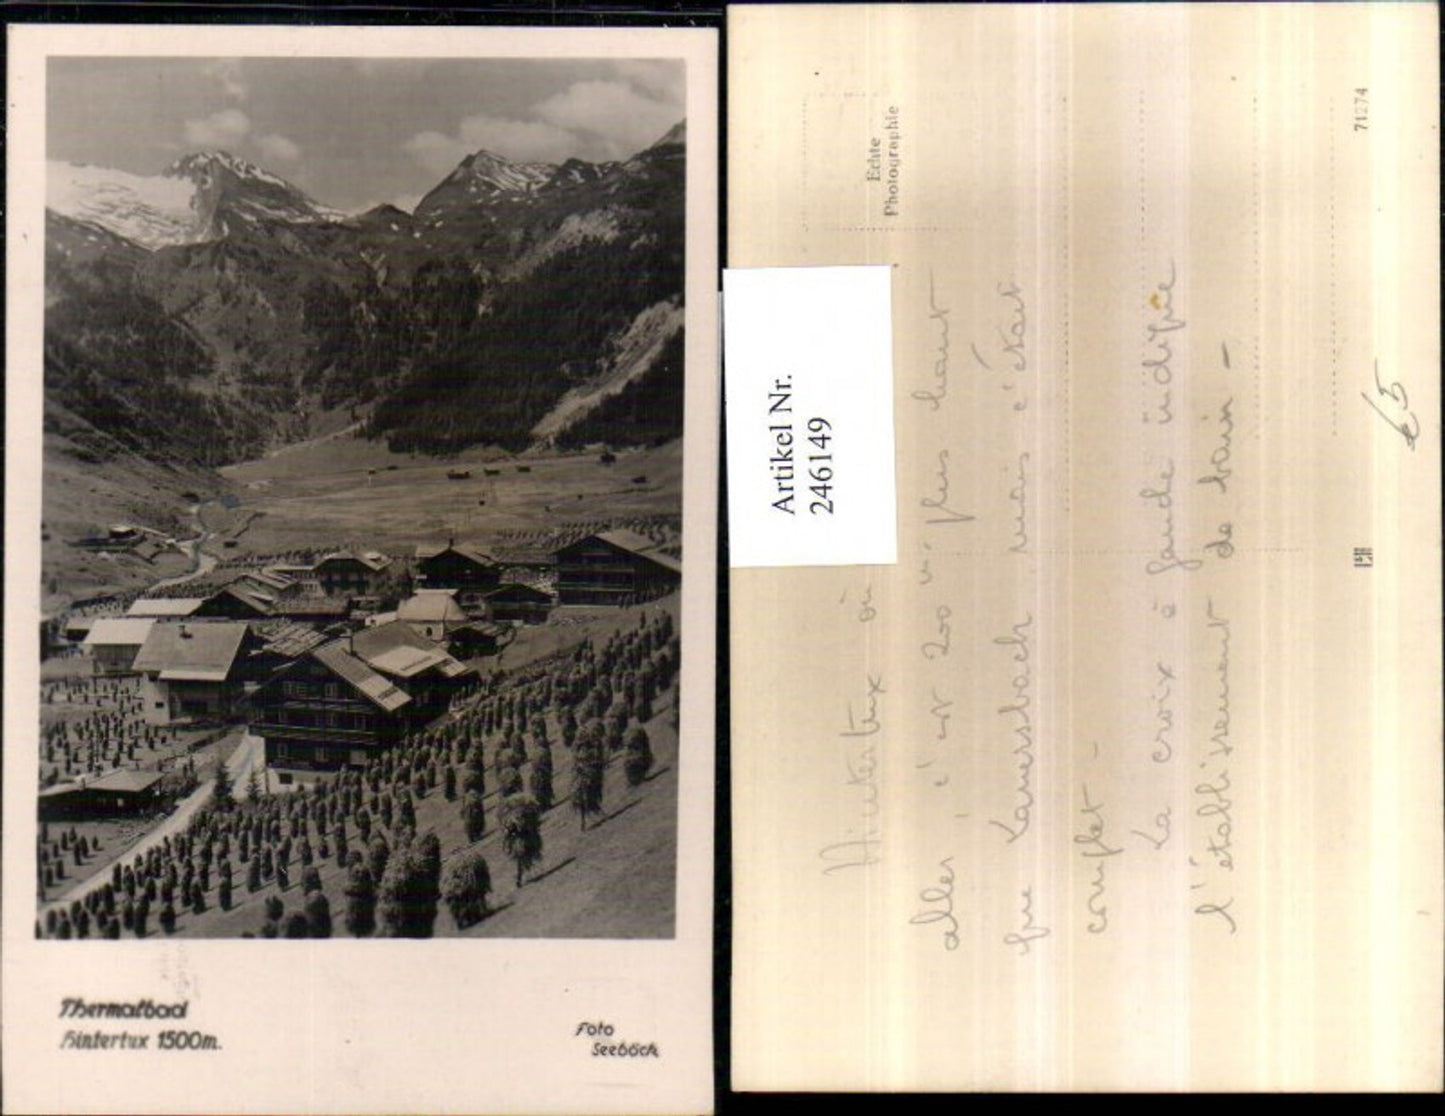 Thermalbad
Hintertux 1500m.
Foto
Seeböck
Echte
Photographie
71274
Artikel Nr.
246149
Hintertux où
aller, c'est 200 m plus haut
que Lanersbach, mais c'était
complet -
La croix à gauche indique
l'établissement de bain -
€5